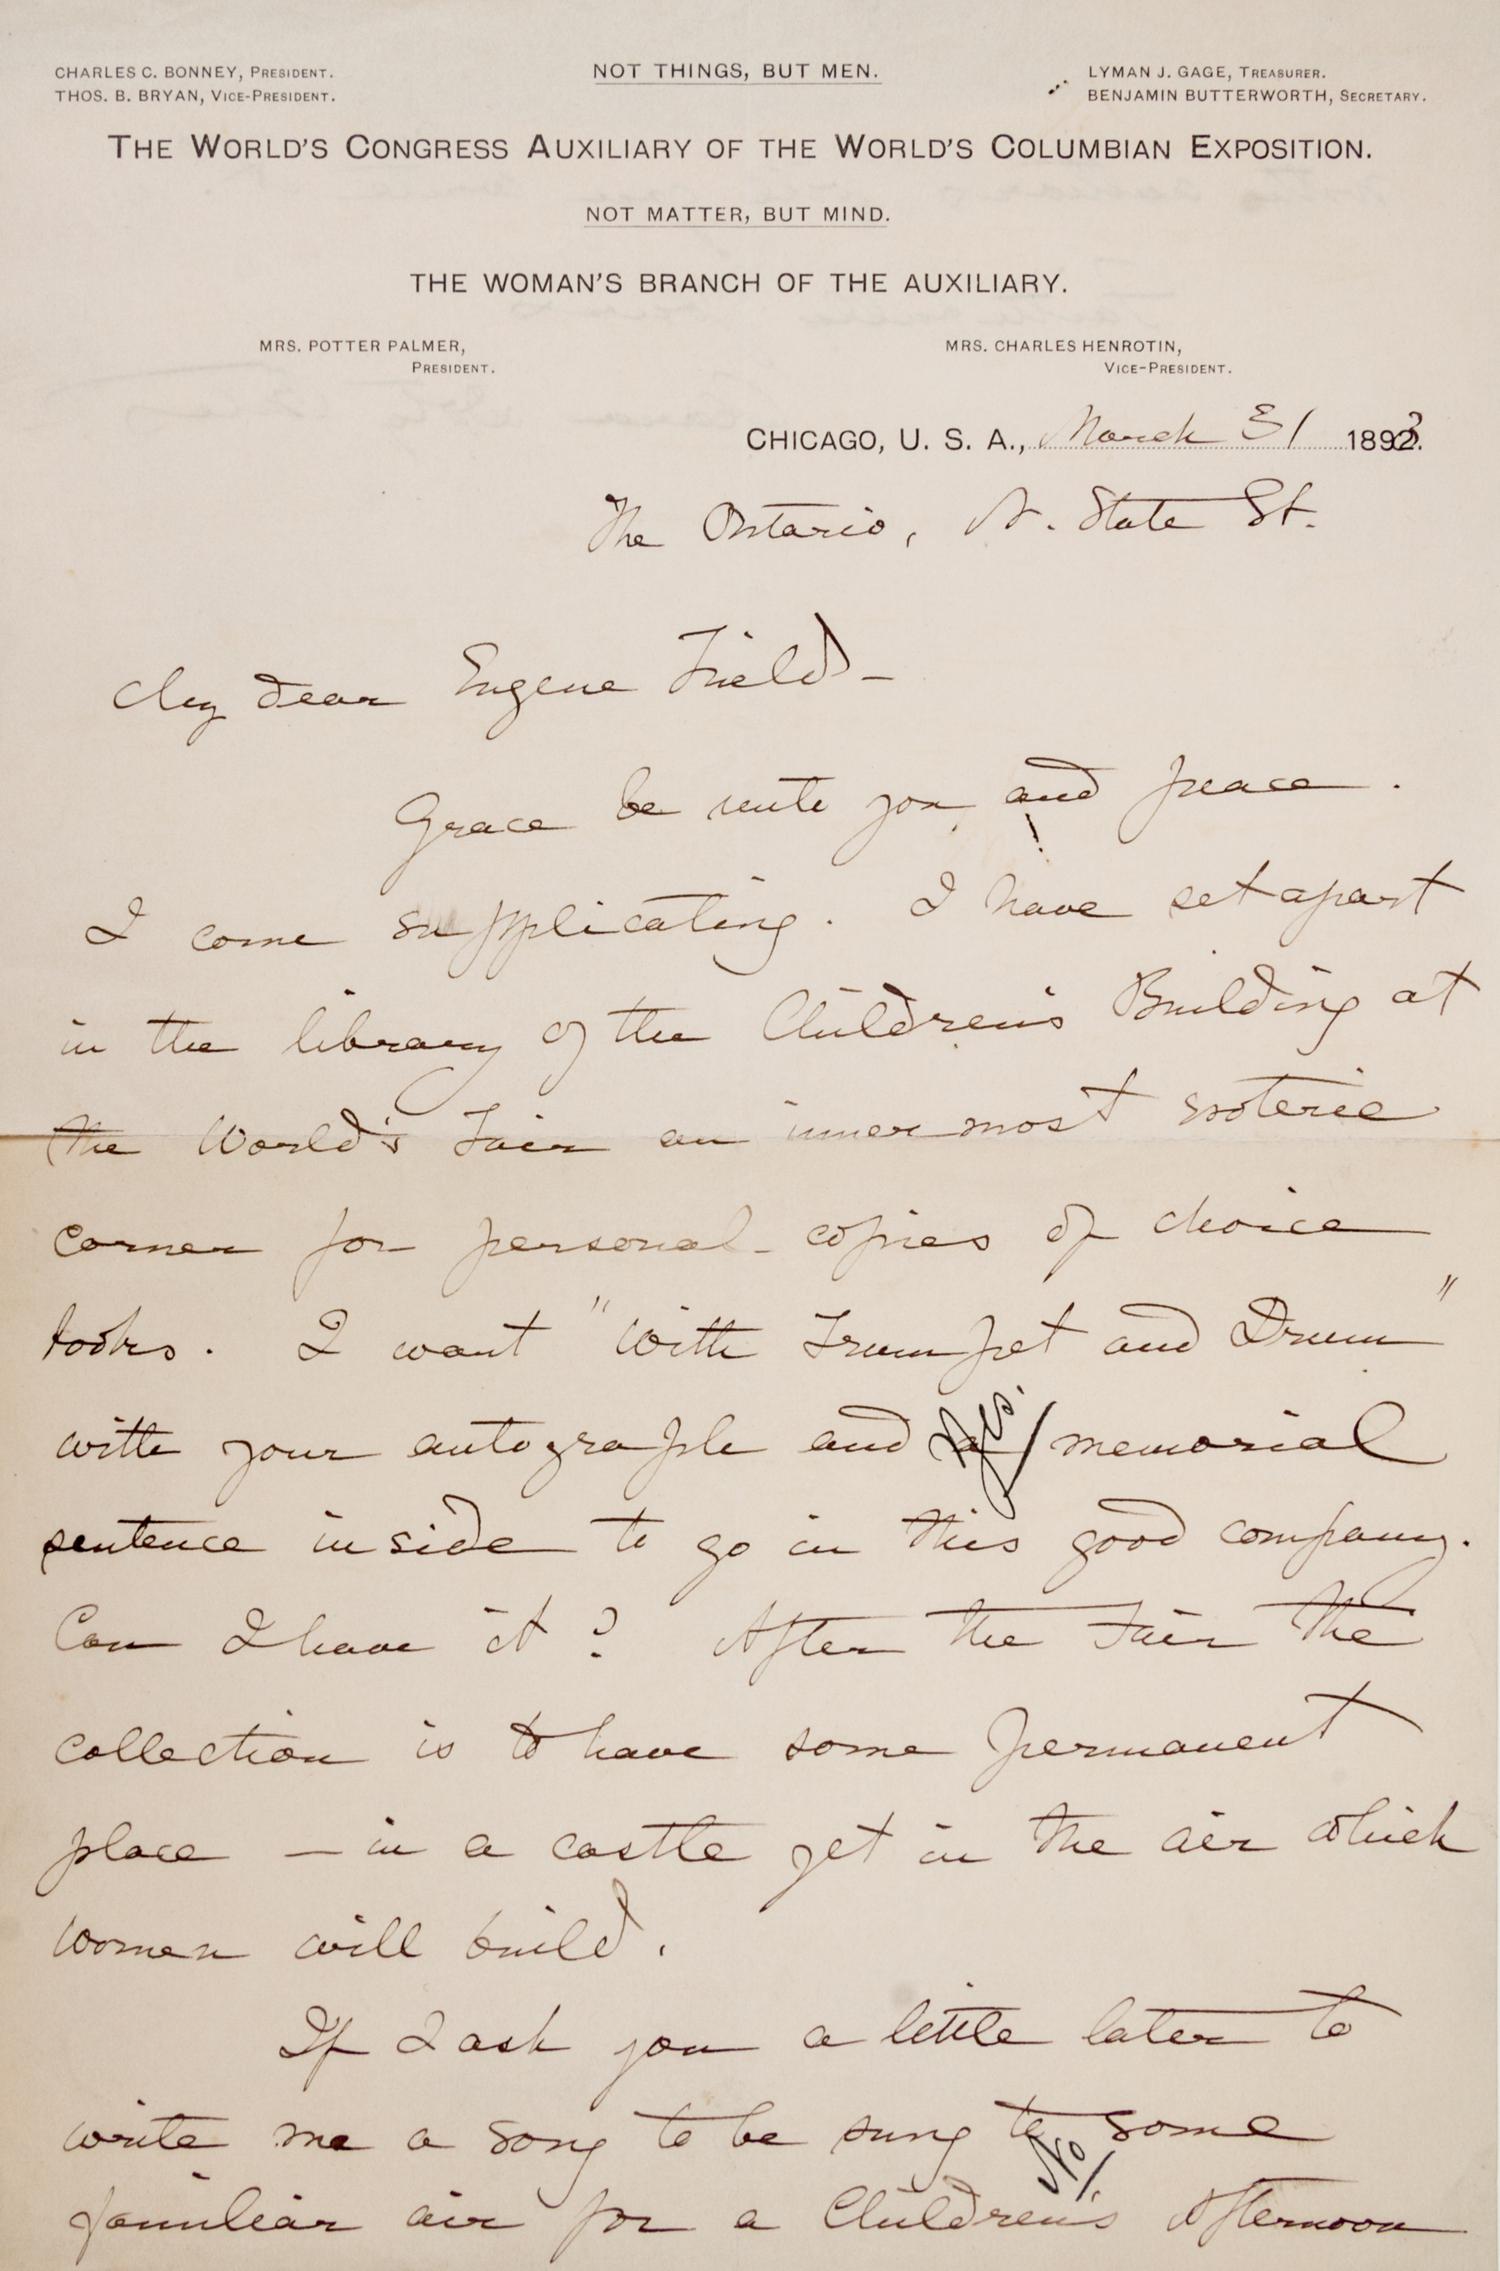 CHARLES C. BONNEY, PRESIDENT.
THOS. B. BRYAN, VICE-PRESIDENT.
NOT THINGS, BUT MEN.
LYMAN J. GAGE, TREASURER.
BENJAMIN BUTTERWORTH, SECRETARY.
THE WORLD'S CONGRESS AUXILIARY OF THE WORLD'S COLUMBIAN EXPOSITION.
NOT MATTER, BUT MIND.
THE WOMAN'S BRANCH OF THE AUXILIARY.
MRS. POTTER PALMER,
PRESIDENT.
MRS. CHARLES HENROTIN,
VICE-PRESIDENT.
CHICAGO, U. S. A., March 31 1893.
The Ontario, N. State St.
My dear Eugene Field –
Grace be unto you and peace.
I come supplicating. I have set apart
in the library of the Children's Building at
the World's Fair an innermost esoteric
corner for personal copies of choice
books. I want "With Trumpet and Drum"
with your autograph and a memorial
Yes.
sentence inside to go in this good company.
Can I have it? After the Fair the
collection is to have some permanent
place – in a castle yet in the air which
women will build.
If I ask you a little later to
write me a song to be sung to some
No
familiar air for a Children's Afternoon